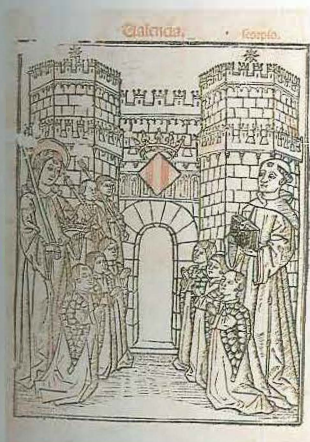 Valencia. scorpio.